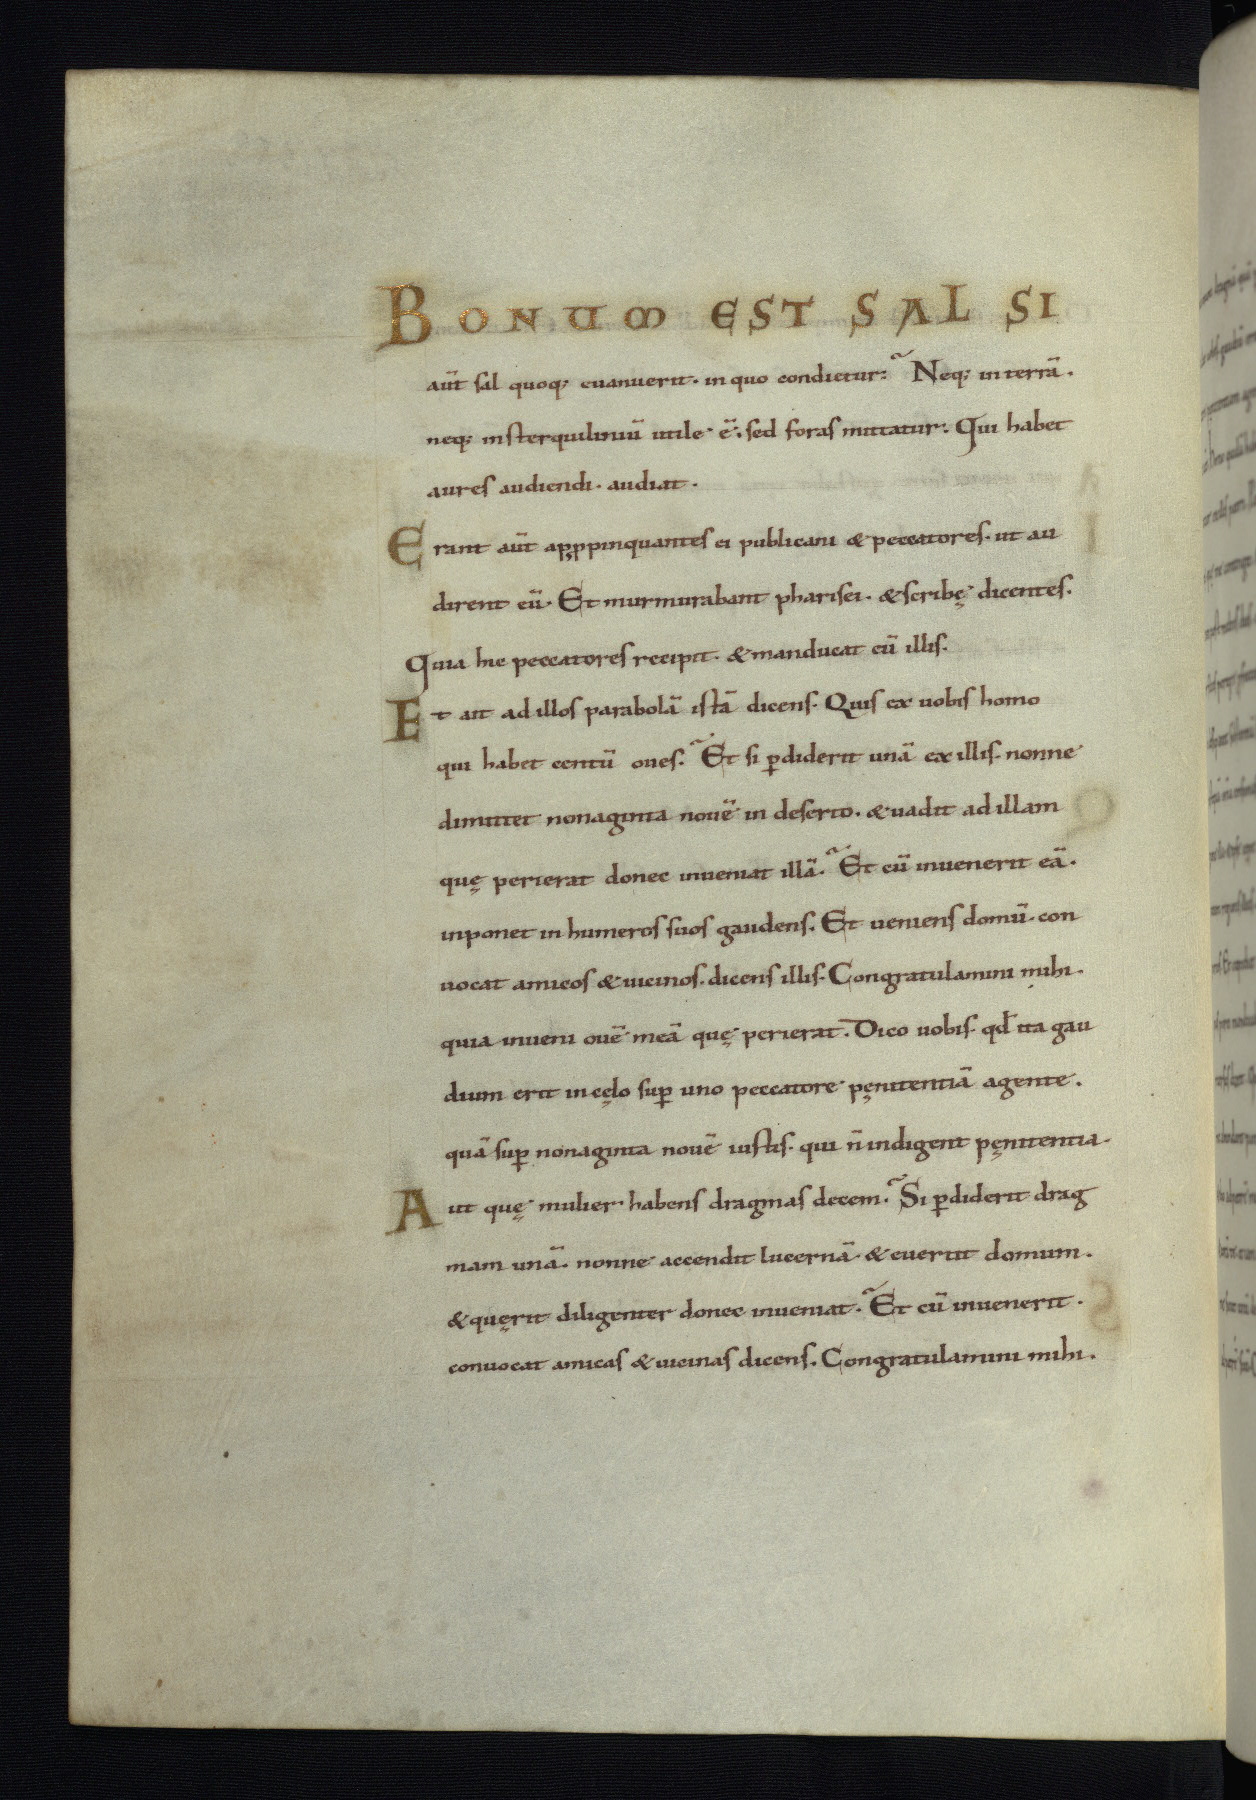 BONUM EST SAL SI
aūt sal quoq; euanuerit. in quo condietur? Neq; in terrā.
neq; in sterquiliniū utile ē. sed foras mittatur. Qui habet
aures audiendi. audiat.
Erant aūt apꝓpinquantes ei publicani & peccatores. ut au
dirent eū. Et murmurabant pharisei. & scribę dicentes.
Quia hic peccatores recipit. & manducat cū illis.
Et ait ad illos parabolā istā dicens. Quis ex uobis homo
qui habet centū oues? Et si ꝑdiderit unā ex illis. nonne
dimittet nonaginta nouē in deserto. & uadit ad illam
quę perierat donec inueniat illā? Et cū inuenerit eā.
inponet in humeros suos gaudens. Et ueniens domū. con
uocat amicos & uicinos. dicens illis. Congratulamini mihi.
quia inueni ouē meā quę perierat. Dico uobis. qđ ita gau
dium erit in cęlo suꝑ uno peccatore pęnitentiā agente.
quā suꝑ nonaginta nouē iustis. qui n̄ indigent pęnitentia.
Aut quę mulier habens dragmas decem? Si ꝑdiderit drag
mam unā. nonne accendit lucernā & euertit domum.
& quęrit diligenter donec inueniat? Et cū inuenerit.
conuocat amicas & uicinas dicens. Congratulamini mihi.